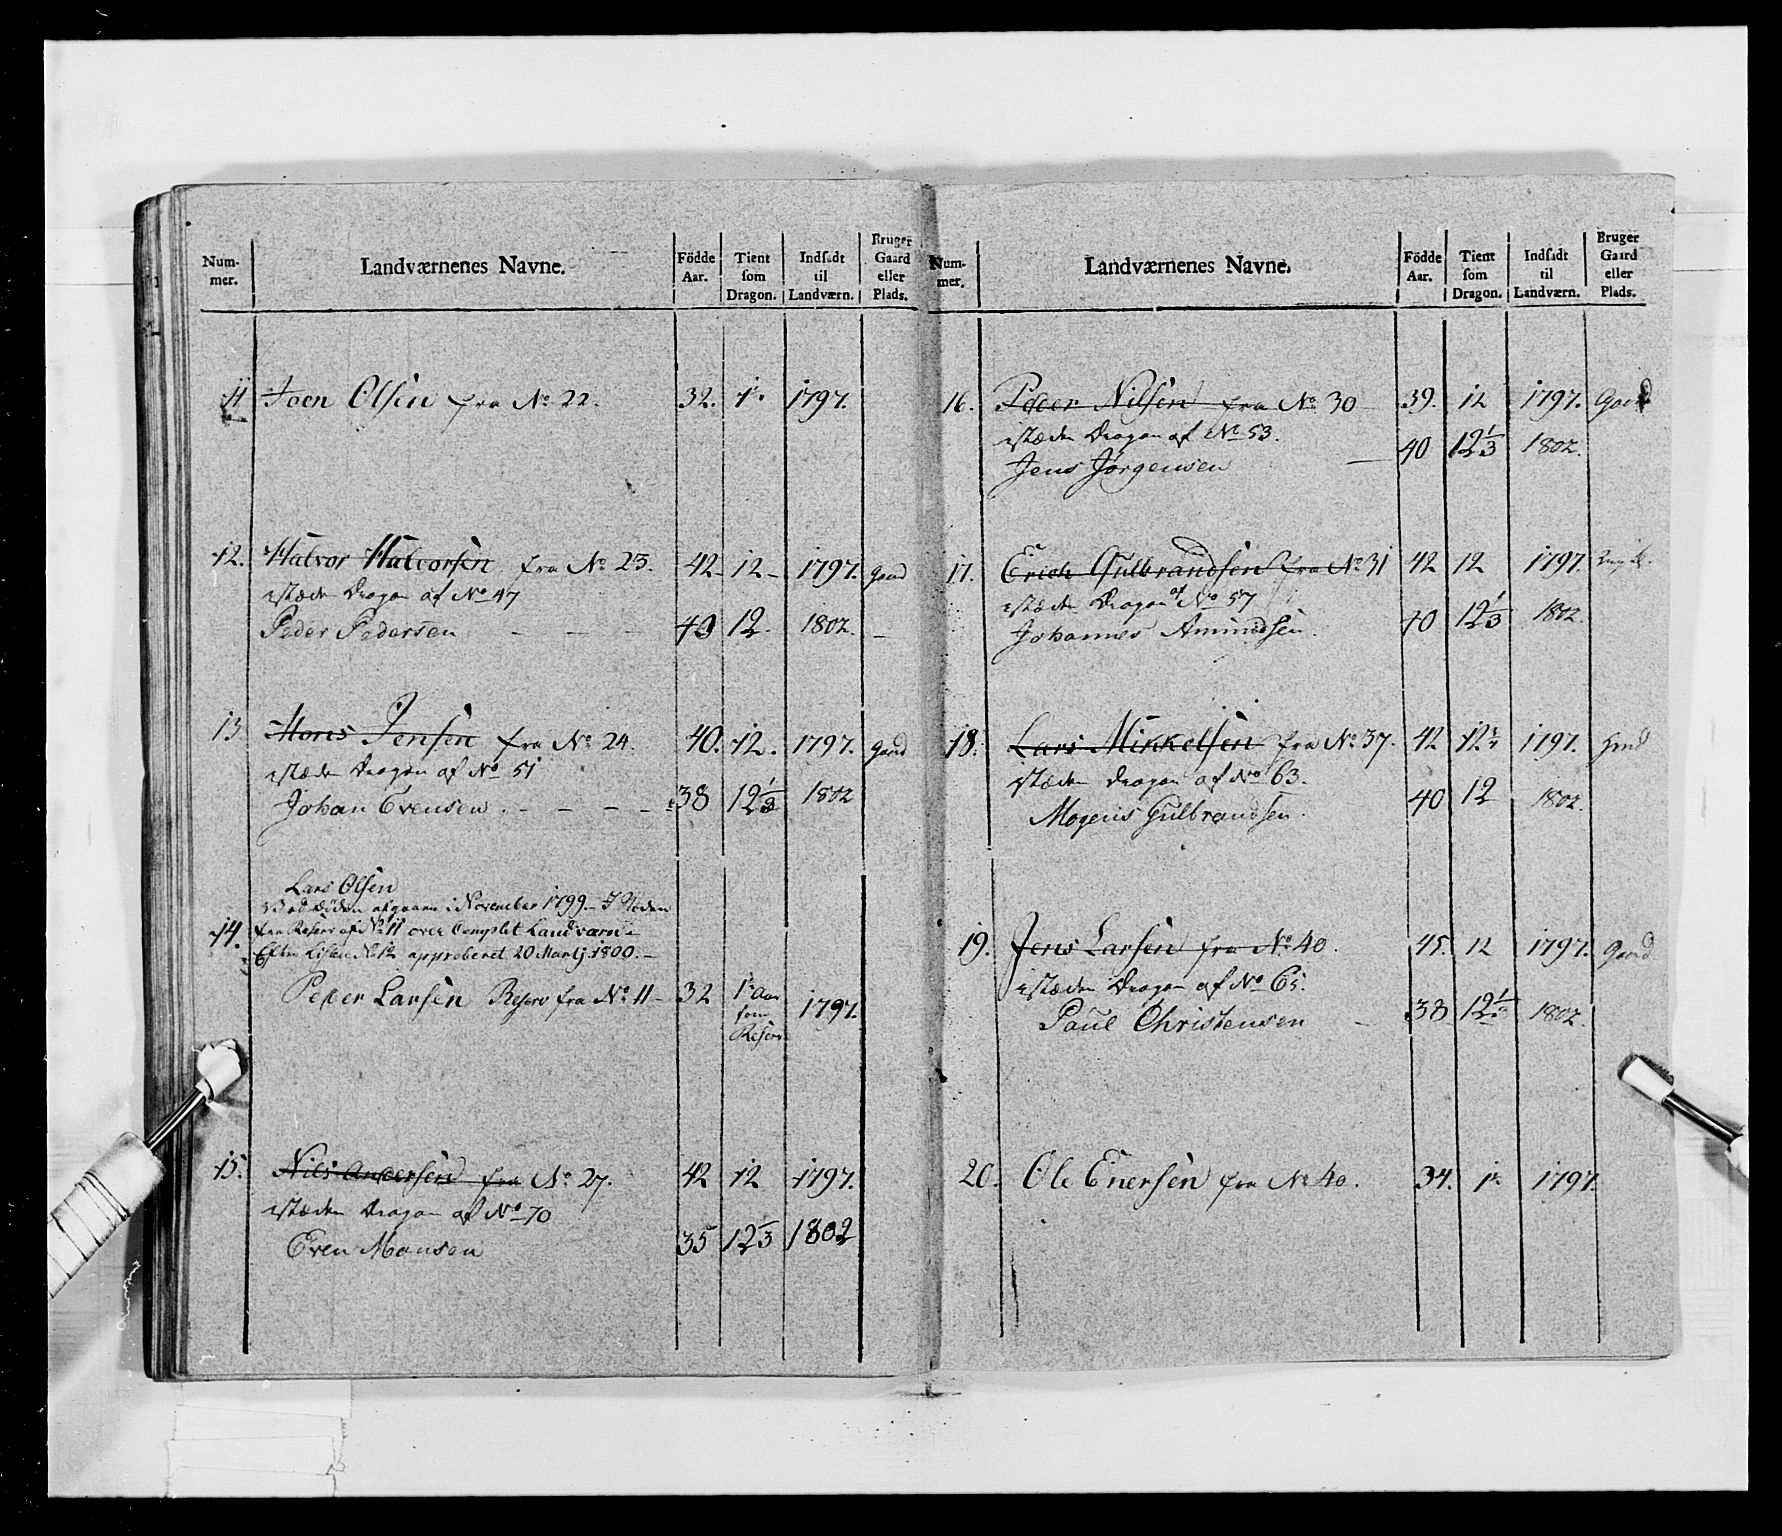 Num-
mer.
Landværnenes Navne.
Födde
Aar.
Tient
som
Dragon.
Indsadt
til
Landværn.
Bruger
Gaard
eller
Plads.
11 Joen Olsen fra No 22. 32. 1797.
12. Halvor Halvorsen fra No 23. 42 12 1797. Gaard
istæden Dragon af No 47
Peder Pedersen 40 12. 1802.
13 Jensen fra No 24. 40. 12. 1797. Gaard
istæden Dragon af No 51
Johan Evensen 38 12 1/3 1802
Lars Olsen
afgaaen i November 1799. I Steden
14. fra Reserv af No 11 over Complet Landværn
Efter Listen approberet 20 Martj 1800.
Peder Larsen Reserv fra No 11 32 1797.
som
Reserv
15. Nils Andersen fra No 27. 42 12 1797.
istæden Dragon af No 70
Even Monsen 35 12 1/3 1802
Num-
mer.
Landværnenes Navne.
Födde
Aar.
Tient
som
Dragon.
Indsadt
til
Landværn.
Bruger
Gaard
eller
Plads.
16. Peder Nilsen fra No 30 39. 12 1797. Gaard
istæden Dragon af No 53.
Jens Jörgensen 40 12 1/3 1802.
17. Erich Gulbrandsen fra No 31 42 12 1797.
istæden Dragon af No 57
Johannes Amundsen. 40 12 1/3 1802.
18. Lars Mikkelsen fra No 37. 42 12 1797.
istæden Dragon af No 63.
Mogens Gulbrandsen. 40 12 1802.
19. Jens Larsen fra No 40. 45. 12 1797. Gaard
istæden Dragon af No 65.
Paul Christensen 38 12 1/3 1802.
20. Ole Enersen fra No 40. 34. 1797.